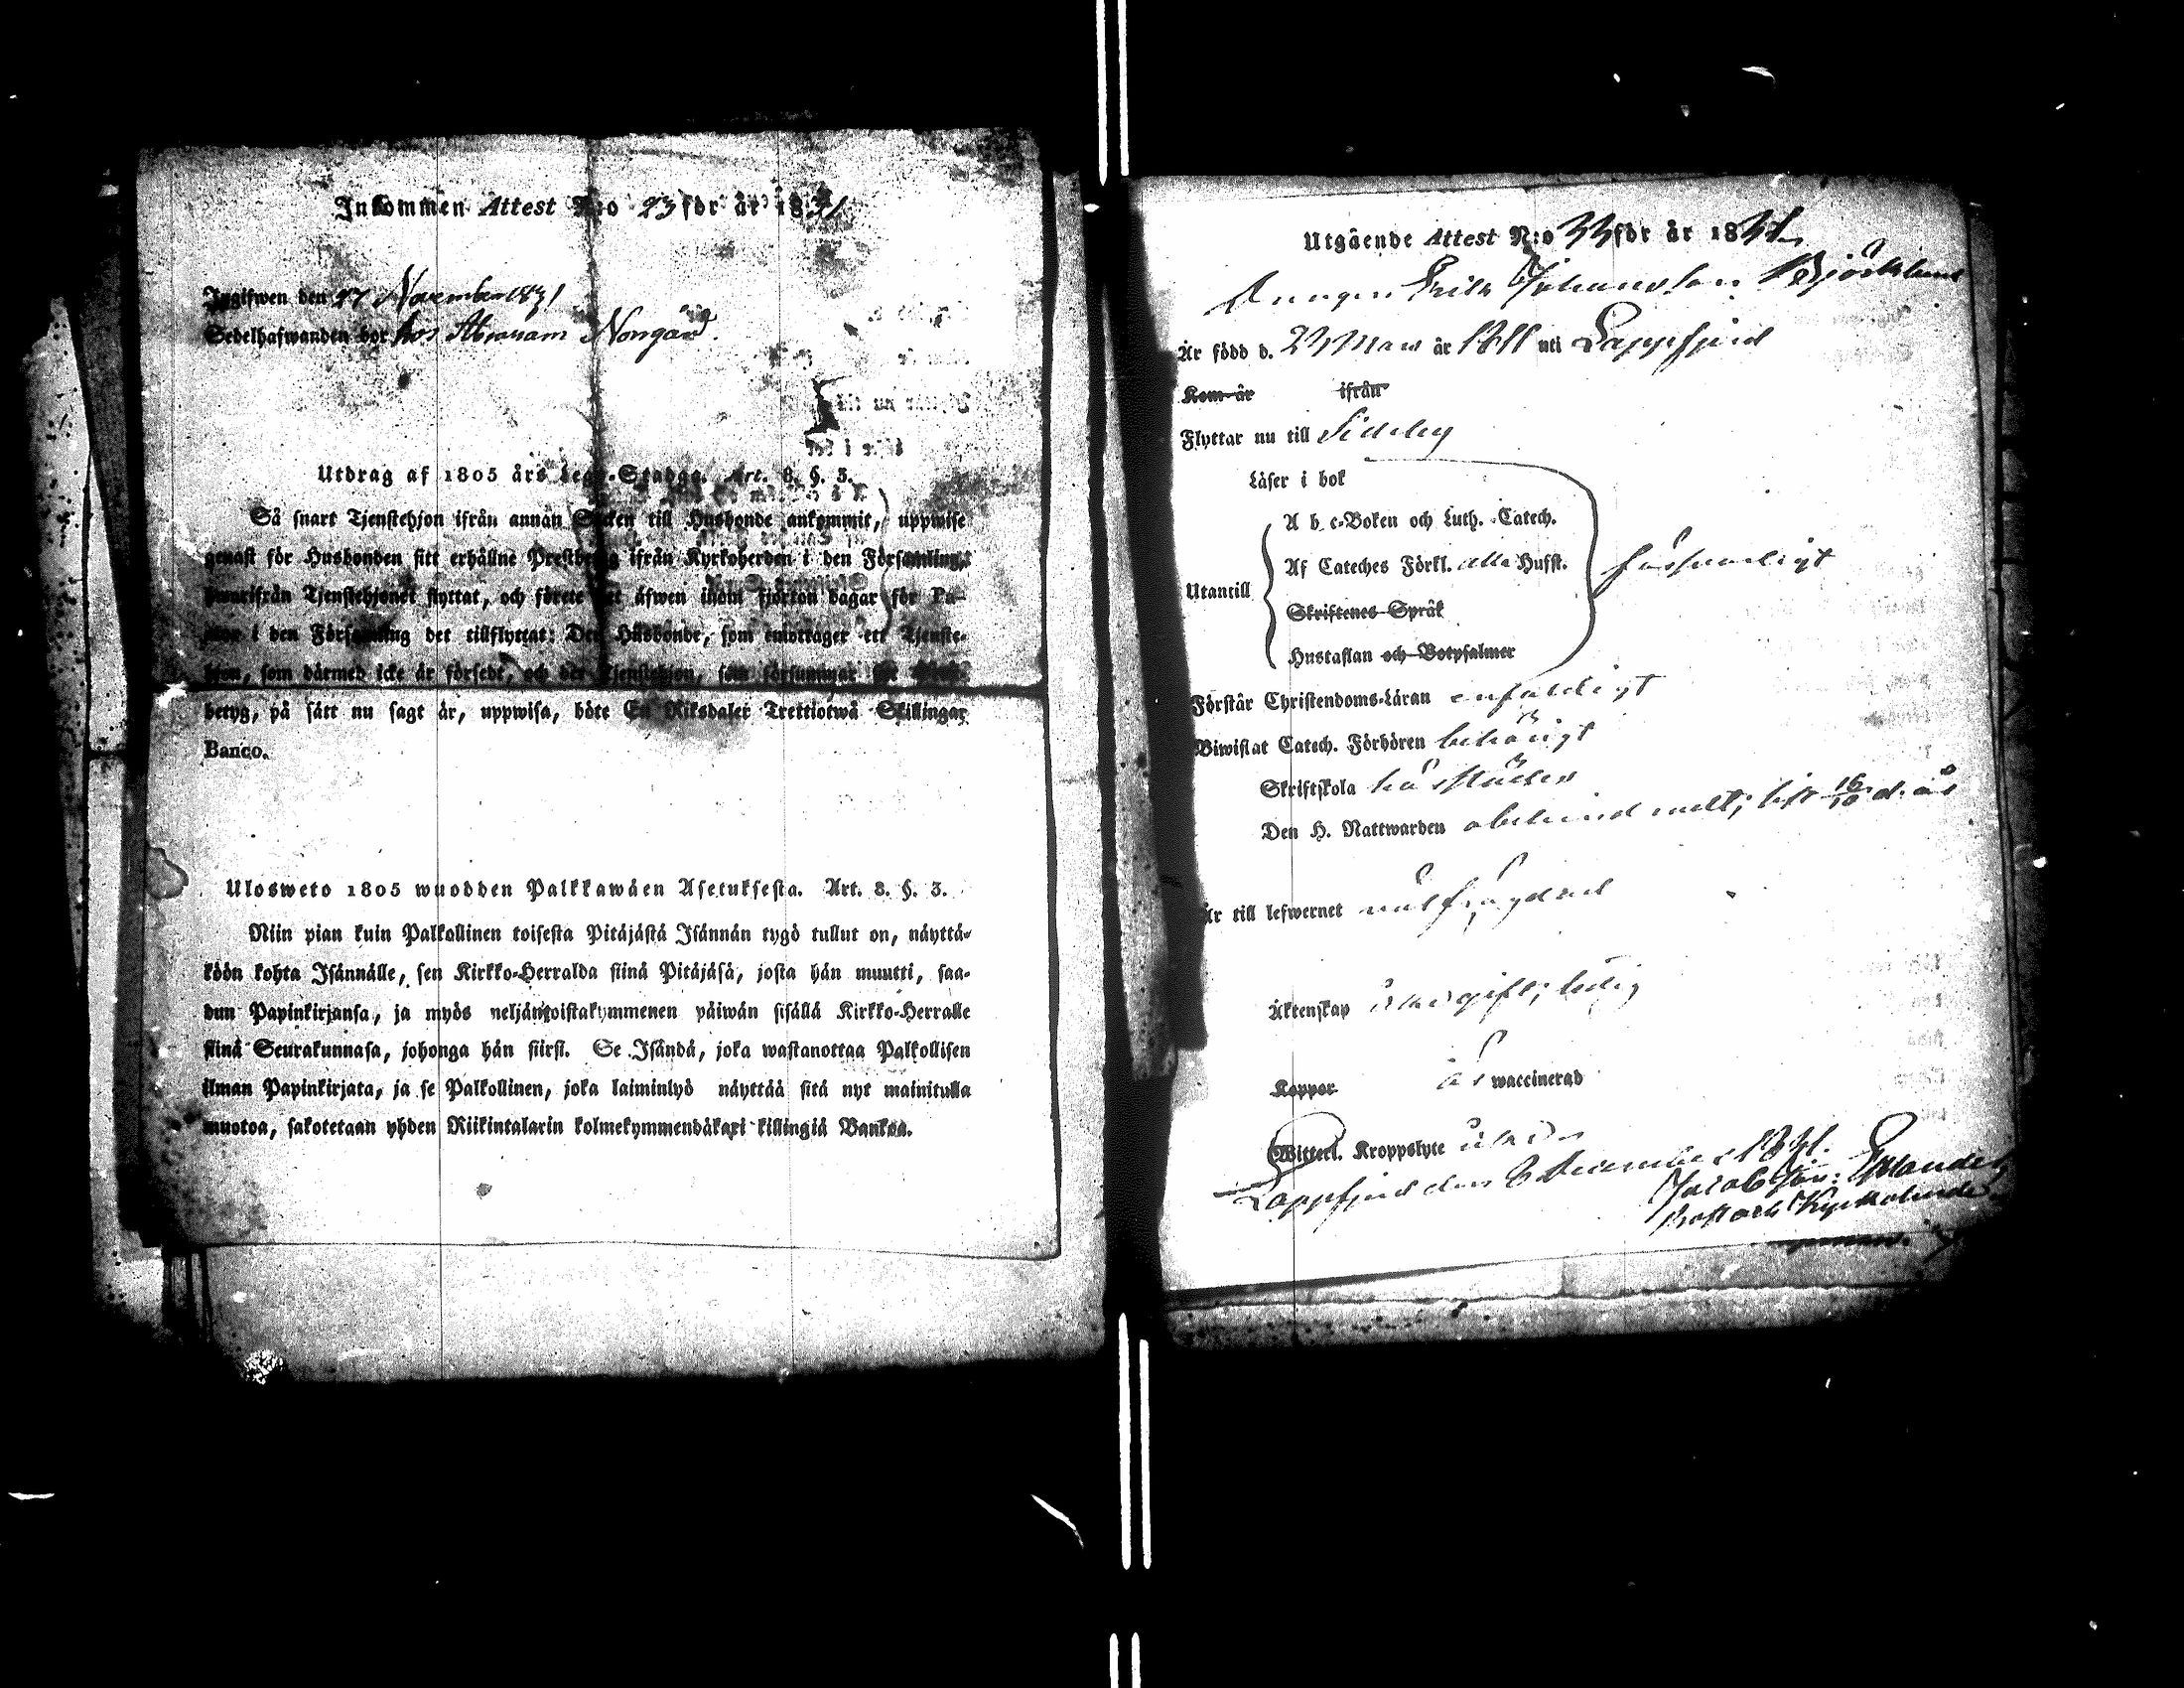 Inkommen Attest N:o 23 för år 1831
Ingifwen den 27 November 1831
Sedelhafwanden bor hos Abraham Norrgård.
Utdrag af 1805 års Lego-Stadga. Art. 8. §. 3.
Så snart Tjenstehjon ifrån annan Socken till Husbonde ankommit, uppwise
genast för Husbonden sitt erhållne Prestbetyg ifrån Kyrkoherden i den Församling,
hwarifrån Tjenstehjonet flyttat, och förete det äfwen inom fjorton dagar för Pa-
stor i den Församling det tillflyttat: Den Husbonde, som emottager ett Tjenste-
hjon, som därmed icke är försedt, och det Tjenstehjon, som försummar sitt Prest-
betyg, på sätt nu sagt är, uppwisa, böte En Riksdaler Trettiotwå Skillingar
Banco.
Ulosweto 1805 wuodden Palkkawäen Asetuksesta. Art. 8. §. 3.
Niin pian kuin Palkollinen toisesta Pitäjästä Isännän tygö tullut on, näyttä-
köön kohta Isännälle, sen Kirkko-Herralda siinä Pitäjäsä, josta hän muutti, saa-
dun Papinkirjansa, ja myös neljäntoistakymmenen päiwän sisällä Kirkko-Herralle
siinä Seurakunnasa, johonga hän siirsi. Se Isändä, joka wastanottaa Palkollisen
ilman Papinkirjata, ja se Palkollinen, joka laiminlyö näyttää sitä nyt mainitulla
muotoa, sakotetaan yhden Riikintalarin kolmekymmendäkaxi killingiä Bankoa.
Utgående Attest N:o 33 för år 1831
Drängen Erik Johansson Björklund
Är född d. 22 Mars år 1811 uti Lappfjerd
Kom år ifrån
Flyttar nu till Sideby
Läser i bok
A b c-Boken och Luth. Catech.
Af Cateches Förkl. alla Hufst. försvarligt
Utantill
Skriftenes Språk
Hustaflan och Botpsalmer
Förstår Christendoms-Läran enfaldigt
Biwistat Catech. Förhören behörigt
Skriftskola
Den H. Nattwarden obehindradt, sist 16/10 d. år
Är till lefwernet
Äktenskap ledig
Koppor är waccinerad
(Witterl. Kroppslyte utan
Lappfjerd den 6 December 1831.
Jacob Jon: Estlander
Prost och Kyrkoherde